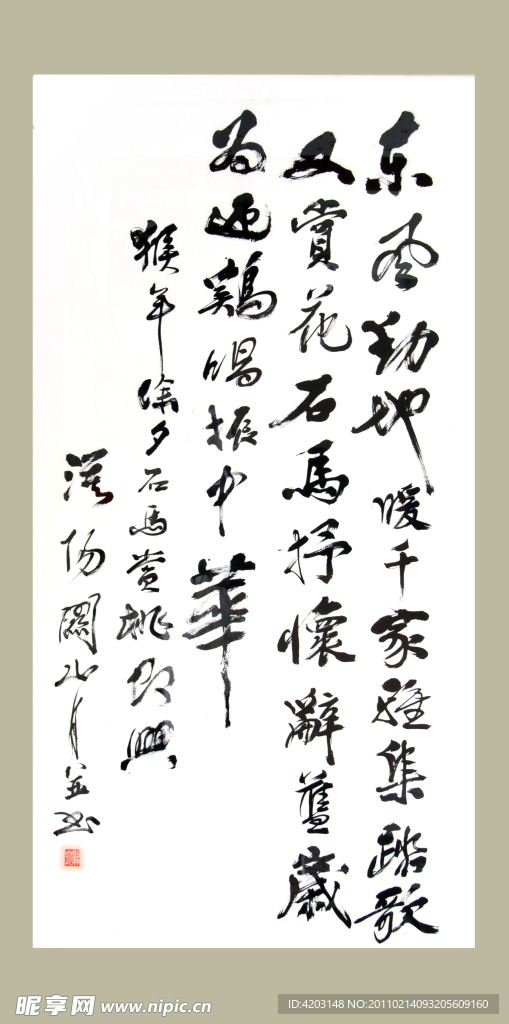 东风动地暖千家雅集踏歌
又赏花石马抒怀辞旧岁
为迎鸡鸣振中华
猴年除夕石马赏桃即兴
汉阳关山月并书
昵享网 www.nipic.cn
ID:4203148 NO:20110214093205609160